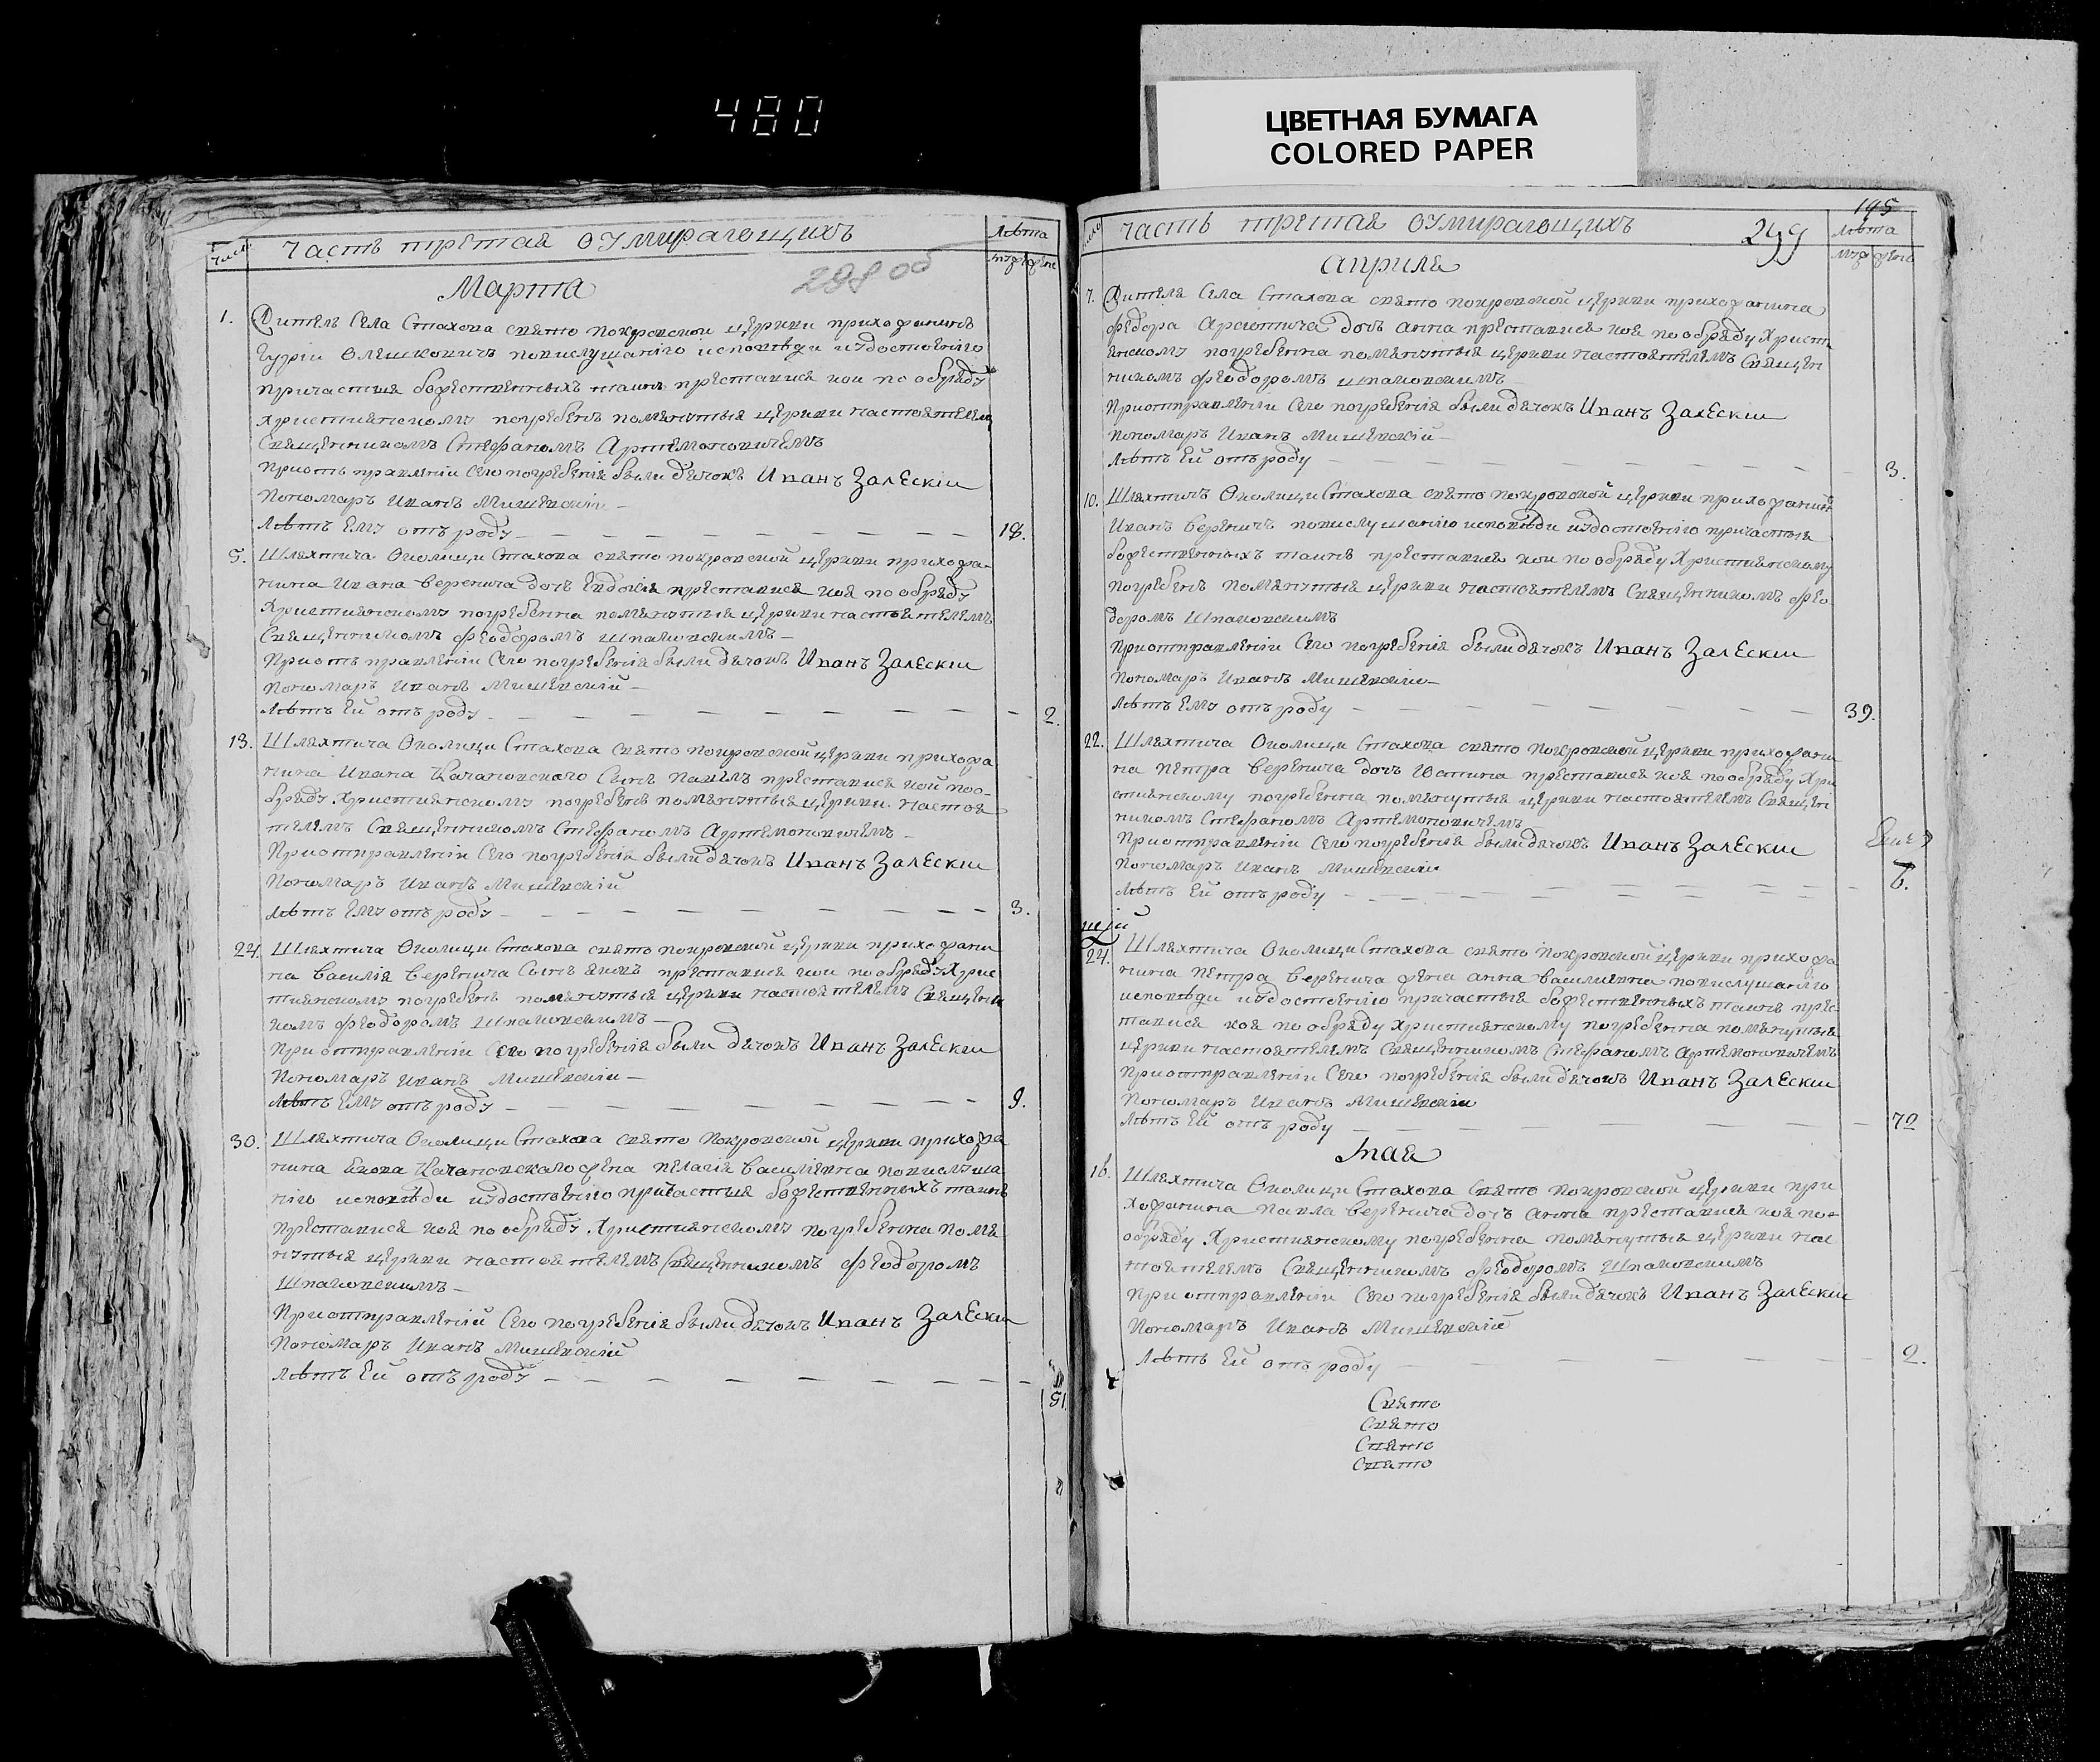 480
ЦВЕТНАЯ БУМАГА
COLORED PAPER
число
Часть третая оумирающихъ
Лѣта
муж
жене
298 об
Марта
1. Дитель Села Стахова свято покровской церкви прихожанинъ
Гурiи Олешковичъ повислушанiю исповѣди издостоенiю
причастия божественныхъ таинъ преставися кои по обряду
християнскому погребенъ помянутыя церкви настоятелем
Священникомъ Стефаномъ Артемоновичемъ
Приотъправленiи Сего погребенiя были дячокъ Иванъ Залескiи
Пономаръ Иванъ Мишевскiи
Лѣтъ Ему отъ роду 18.
5. Шляхтича Околици Стахова свято покровской церкви прихожа-
нина Ивана Веренича дочъ Евдокiя преставися коя по обряду
Християнскому погребенна помянутыя церкви настоятелемъ
Священникомъ Феодоромъ Шпаковскимъ
Приотъправленiи Сего погребенiя были дячокъ Иванъ Залескiи
Пономаръ Иванъ Мишевскiй
Лѣтъ Ей отъ роду 2.
13. Шляхтича Околици Стахова Свято покровской церкви прихожа
нина Ивана Качановского Сынъ Павелъ преставися кой поо-
бряду Християнскому погребенъ помянутыя церкви настоя
телемъ Священникомъ Стефаномъ Артемоновичемъ
Приотправленiи Сего погребенiя были дячокъ Иванъ Залескiи
Пономаръ Иванъ Мишевскiй
Лѣтъ Ему отъ роду 3.
24. Шляхтича Околици Стахова свято покровской церкви прихожани
на Василiя Веренича Сынъ Яковъ преставися кои по обряду Хрис
тиянскому погребенъ помянутыя церкви настоятелемъ Священи
комъ Феодоромъ Шпаковскимъ
При отправленiи Сего погребенiя были дячокъ Иванъ Залескiи
Пономаръ Иванъ Мишевскiи
Лѣтъ Ему отъ роду 9.
30. Шляхтича Околици Стахова свято Покровской церкви прихожа
нина Якова Качановскало жена Пелагiя Василiевна повислуша
нiю исповѣди издостоенiю причастия божественныхъ таинъ
преставися коя по обряду Християнскому погребенна помя
нутыя церкви настоятелемъ Священникомъ Феодоромъ
Шпаковскимъ
Приотправленiй Сего погребенiя были дячокъ Иванъ Залескiи
Пономаръ Иванъ Мишевскiй
Лѣтъ Ей отъ роду
51.
число
Часть третая оумирающихъ
299
195
Лѣта
муж
жене
Априля
7. Дителя Села Стахова свято покровской церкви прихожанина
Федора дочъ Анна преставися коя по обряду Христи
янскому погребенна помянутыя церкви настоятелемъ Священ
никомъ Феодоромъ Шпаковскимъ
Приотправленiи Сего погребенiя были дячокъ Иванъ Залескiи
Пономаръ Иванъ Мишевскiй
Лѣтъ Ей отъ роду 3.
10. Шляхтичъ Околици Стахова свято покровской церкви прихожанинъ
Иванъ Вереничъ повислушанiю исповѣди издостоенiю причастия
божественныхъ таинъ преставися кои по обряду Християнскому
Погребенъ помянутыя церкви настоятелемъ Священникомъ Фео
доромъ Шпаковскимъ
Приотправленiи Сего погребенiя были дячокъ Иванъ Залескiи
Пономаръ Иванъ Мишевскiи
Лѣтъ Ему отъ роду 39.
22. Шляхтича Околици Стахова Свято Покровской церкви прихожани
на Петра Веренича дочъ Юстина преставися коя по обряду Хри
стиянскому погребенна помянутыя церкви настоятелемъ Священ
никомъ Стефаномъ Артемоновичемъ
Приотправленiи Сего погребенiя были дячокъ Иванъ Залескiи
Пономаръ Иванъ Мишевскiи
Лѣтъ Ей отъ роду 6.
24. Шляхтича Околици Стахова свято покровской церкви прихожа
нина Петра Веренича жена Анна Василиевна повислушанiю
исповѣди издостоенiю причастия божественныхъ таинъ прес
тавися коя по обряду Християнскому погребенна помянутыя
церкви настоятелемъ Священникомъ Стефаномъ Артемоновичемъ
Приотправленiи Сего погребенiя были дячокъ Иванъ Залескiи
Пономаръ Иванъ Мишевскiи
Лѣтъ Ей отъ роду 72
Мая
16. Шляхтича Околици Стахова Свято покровской церкви при
хожанина Павла Веренича дочъ Анна преставися коя по-
обряду Християнскому погребенна помянутыя церкви нас
тоятелемъ Священникомъ Феодоромъ Шпаковскимъ
При отправленiи Сего погребенiя были дячокъ Иванъ Залескiи
Пономаръ Иванъ Мишевскiй
Лѣтъ Ей отъ роду 2.
Свято
Свято
Свято
Свято